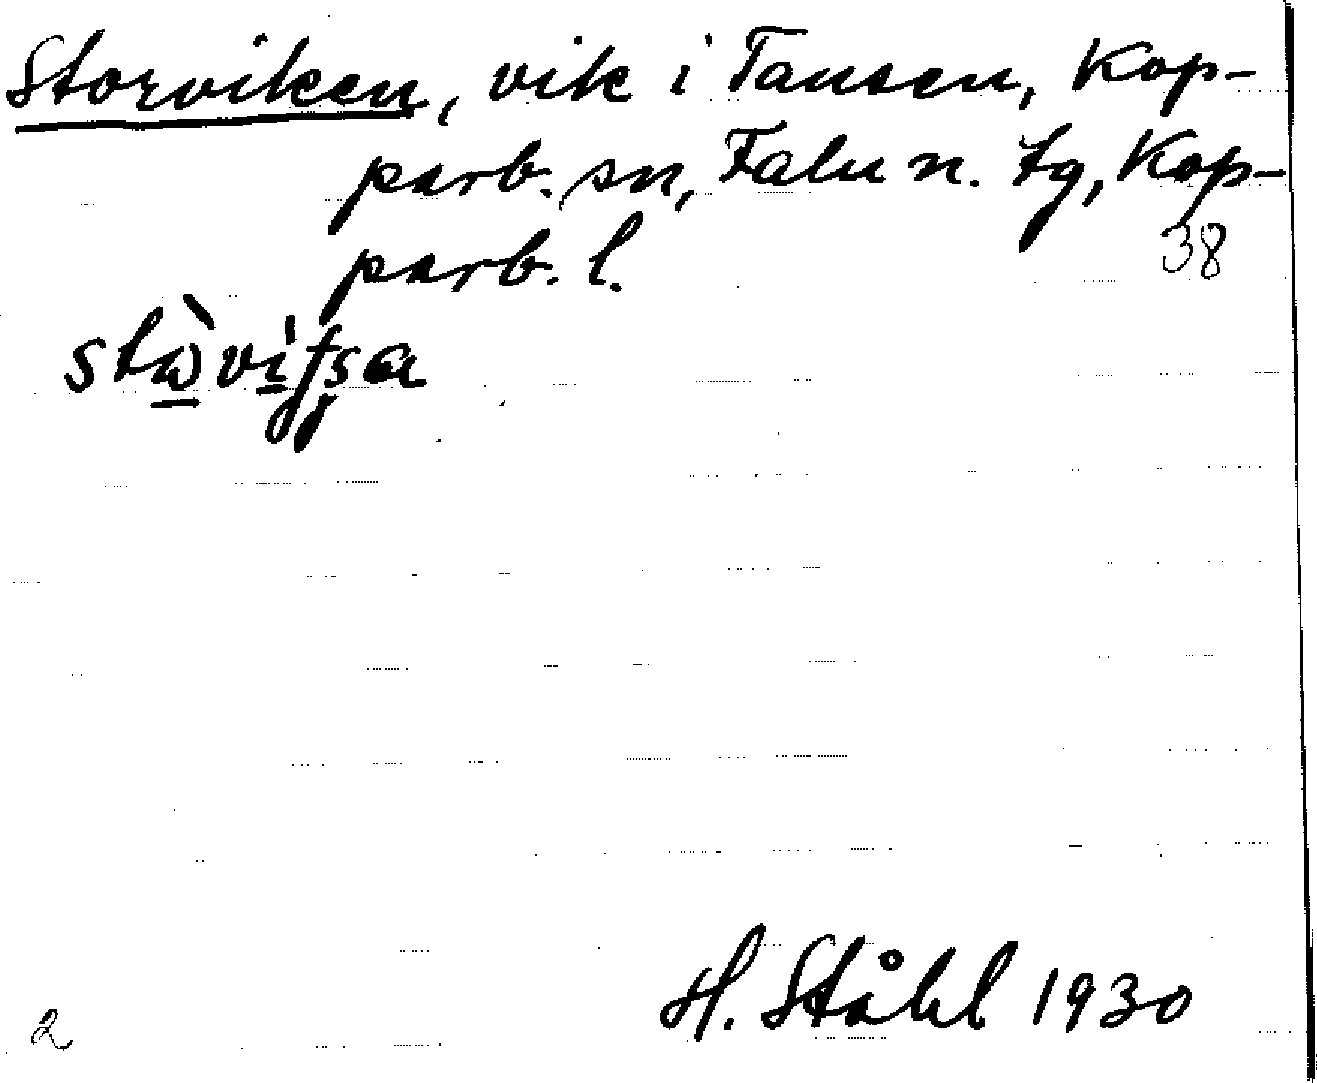 Storviken, vik i Tansen, Kop-
parb. sn, Falu n. tg, Kop-
parb. l.
38
H. Ståhl 1930
2